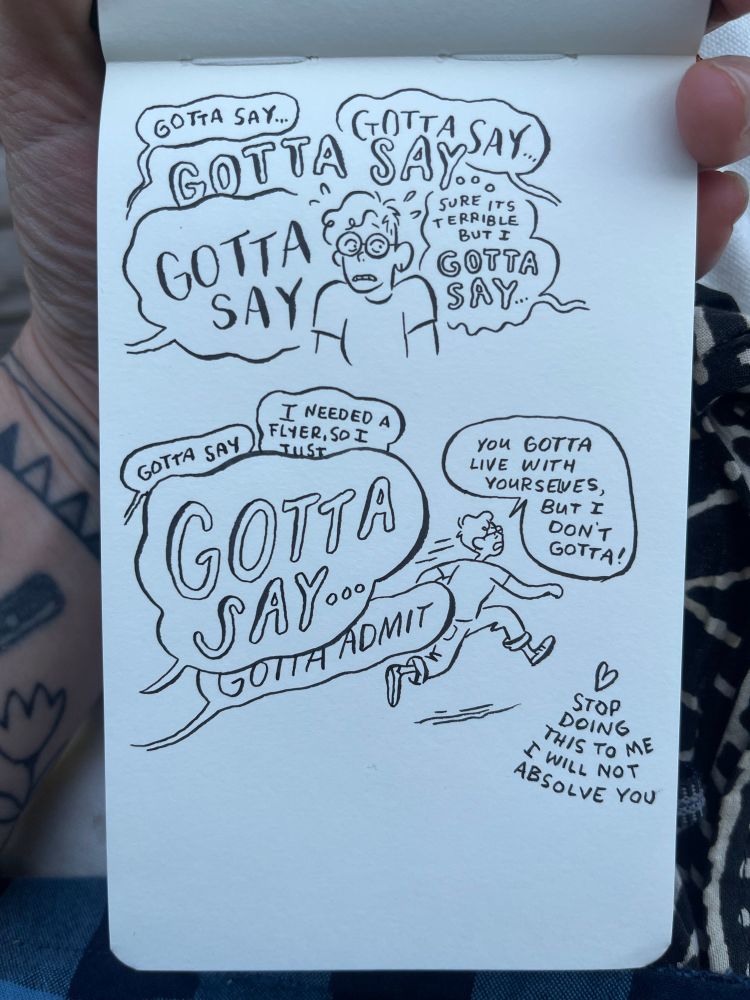 GOTTA SAY...
GOTTA SAY...
GOTTA SAY...
GOTTA
SAY
SURE ITS
TERRIBLE
BUT I
GOTTA
SAY...
GOTTA SAY
I NEEDED A
FLYER, SO I
JUST
GOTTA
SAY...
GOTTA ADMIT
YOU GOTTA
LIVE WITH
YOURSELVES,
BUT I
DON'T
GOTTA!
STOP
DOING
THIS TO ME
I WILL NOT
ABSOLVE YOU